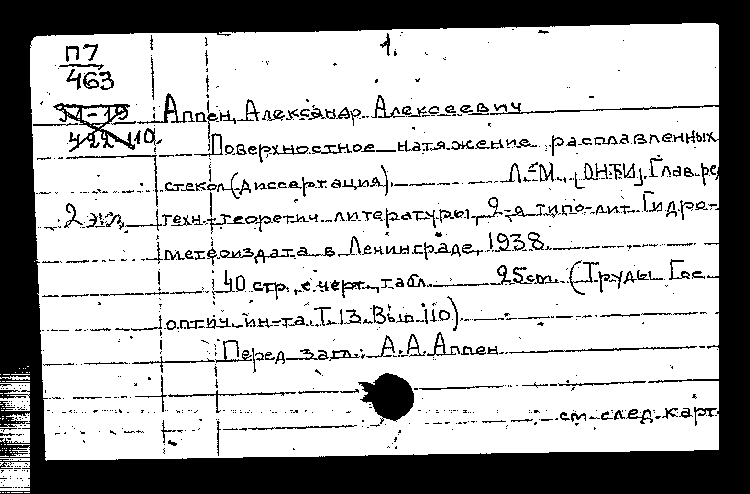 1.
П7
463
31-19
422-110
2 экз.
Аппен, Александр Алексеевич
Поверхностное натяжение расплавленных
стекол (диссертация). Л.-М., [ОНТИ], Глав. ред
техн.-теоретич. литературы, 2-я типо-лит. Гидро-
метеоиздата в Ленинграде, 1938.
40 стр., с черт., табл. 25cm. (Труды Гос.
оптич. ин-та. Т.13. Вып. 110).
Перед загл.: А.А. Аппен
см. след. карт